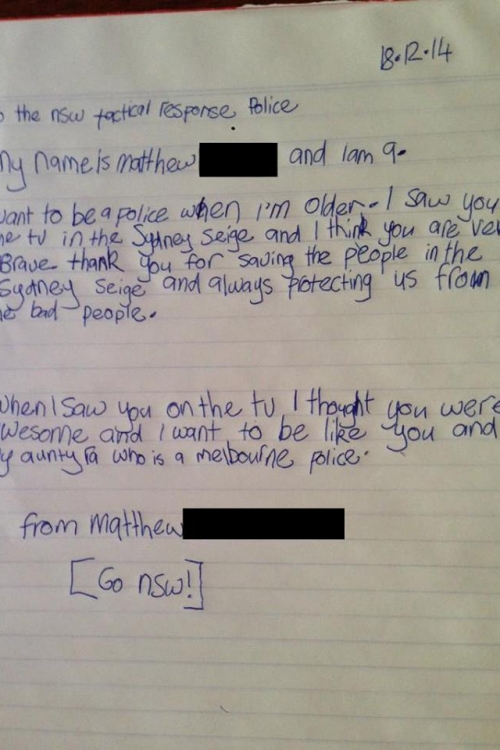 18.12.14
o the nsw tactical response Police
My name is matthew and I am 9.
want to be a police when I'm older. I saw you
he tv in the Sydney seige and I think you are ver
Brave. thank you for saving the people in the
Sydney seige and always protecting us from
he bad people.
when I saw you on the tv I thought you were
wesome and I want to be like you and
y aunty Ta who is a melbourne police.
from matthew
[Go nsw!]